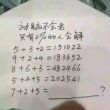 动脑不会老
只有2%的人会解
5+3+2=151022
9+2+4=183652
8+6+3=482466
5+4+5=202541
7+2+5=